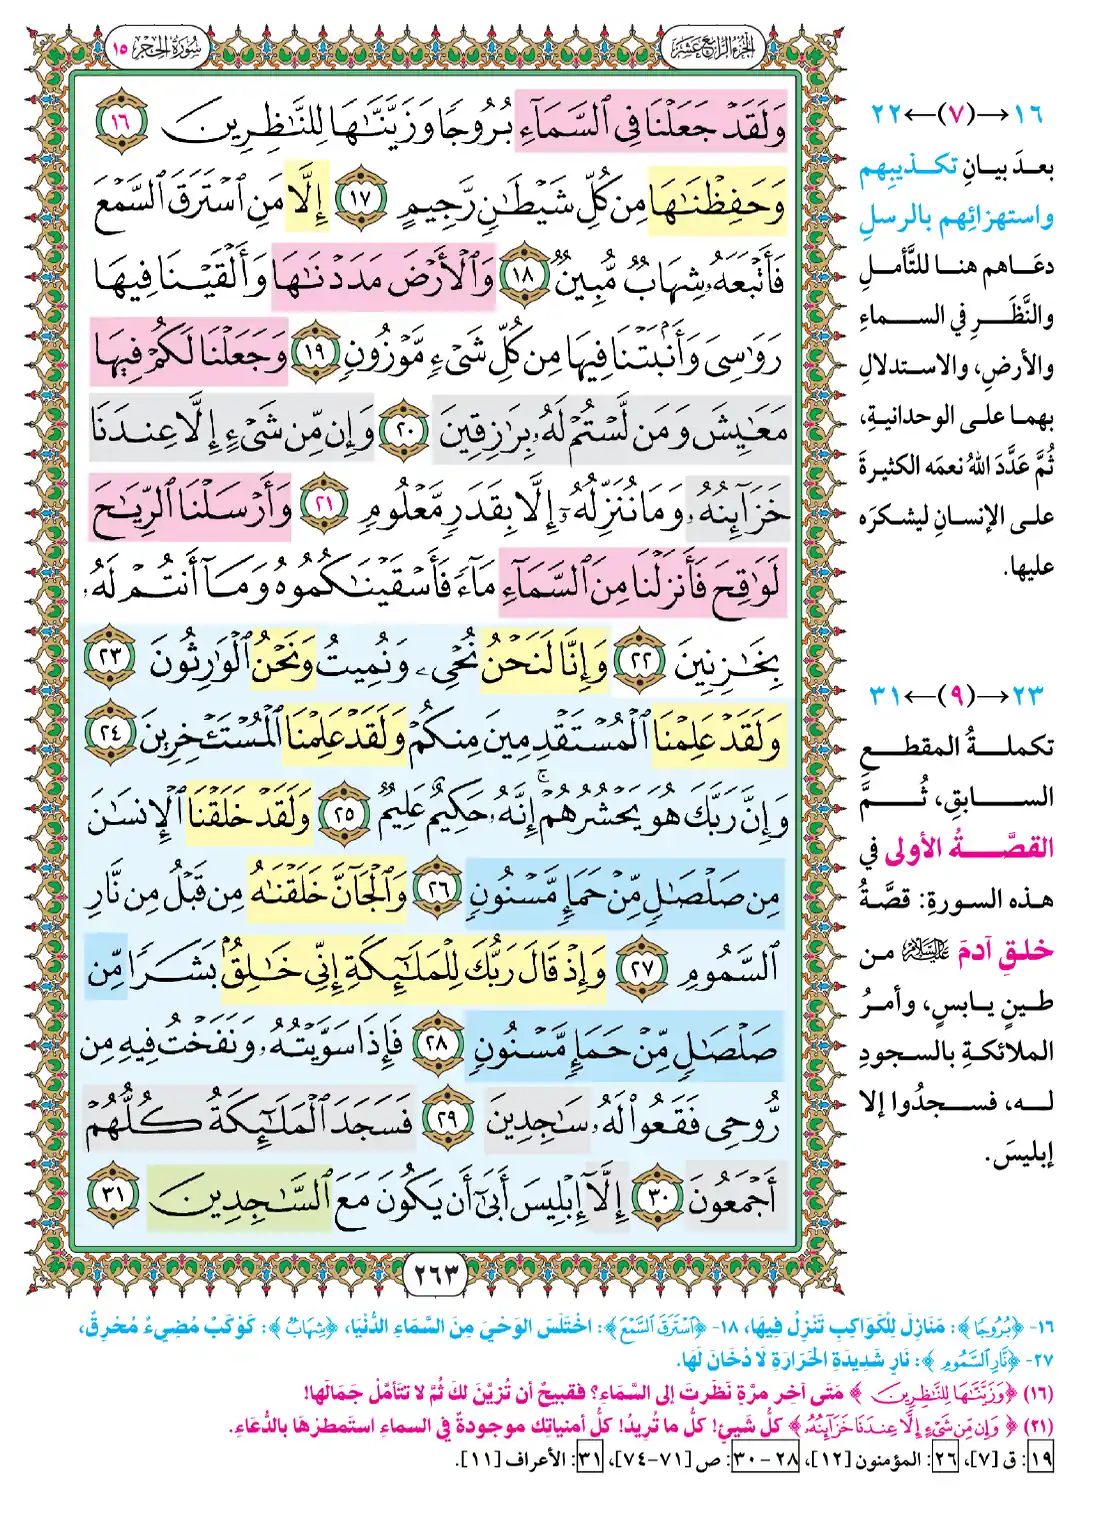 الجزء الرابع عشر
سورة الحجر ١٥
وَلَقَدْ جَعَلْنَا فِي السَّمَآءِ بُرُوجًا وَزَيَّنَّٰهَا لِلنَّٰظِرِينَ ١٦
وَحَفِظْنَٰهَا مِن كُلِّ شَيْطَٰنٍ رَّجِيمٍ ١٧ إِلَّا مَنِ ٱسْتَرَقَ ٱلسَّمْعَ
فَأَتْبَعَهُۥ شِهَابٌ مُّبِينٌ ١٨ وَٱلْأَرْضَ مَدَدْنَٰهَا وَأَلْقَيْنَا فِيهَا
رَوَٰسِيَ وَأَنۢبَتْنَا فِيهَا مِن كُلِّ شَيْءٍ مَّوْزُونٍ ١٩ وَجَعَلْنَا لَكُمْ فِيهَا
مَعَٰيِشَ وَمَن لَّسْتُمْ لَهُۥ بِرَٰزِقِينَ ٢٠ وَإِن مِّن شَيْءٍ إِلَّا عِندَنَا
خَزَآئِنُهُۥ وَمَا نُنَزِّلُهُۥٓ إِلَّا بِقَدَرٍ مَّعْلُومٍ ٢١ وَأَرْسَلْنَا ٱلرِّيَٰحَ
لَوَٰقِحَ فَأَنزَلْنَا مِنَ ٱلسَّمَآءِ مَآءً فَأَسْقَيْنَٰكُمُوهُ وَمَآ أَنتُمْ لَهُۥ
بِخَٰزِنِينَ ٢٢ وَإِنَّا لَنَحْنُ نُحْيِۦ وَنُمِيتُ وَنَحْنُ ٱلْوَٰرِثُونَ ٢٣
وَلَقَدْ عَلِمْنَا ٱلْمُسْتَقْدِمِينَ مِنكُمْ وَلَقَدْ عَلِمْنَا ٱلْمُسْتَـْٔخِرِينَ ٢٤
وَإِنَّ رَبَّكَ هُوَ يَحْشُرُهُمْ ۚ إِنَّهُۥ حَكِيمٌ عَلِيمٌ ٢٥ وَلَقَدْ خَلَقْنَا ٱلْإِنسَٰنَ
مِن صَلْصَٰلٍ مِّنْ حَمَإٍ مَّسْنُونٍ ٢٦ وَٱلْجَآنَّ خَلَقْنَٰهُ مِن قَبْلُ مِن نَّارِ
ٱلسَّمُومِ ٢٧ وَإِذْ قَالَ رَبُّكَ لِلْمَلَٰٓئِكَةِ إِنِّي خَٰلِقٌۢ بَشَرًا مِّن
صَلْصَٰلٍ مِّنْ حَمَإٍ مَّسْنُونٍ ٢٨ فَإِذَا سَوَّيْتُهُۥ وَنَفَخْتُ فِيهِ مِن
رُّوحِي فَقَعُوا۟ لَهُۥ سَٰجِدِينَ ٢٩ فَسَجَدَ ٱلْمَلَٰٓئِكَةُ كُلُّهُمْ
أَجْمَعُونَ ٣٠ إِلَّآ إِبْلِيسَ أَبَىٰٓ أَن يَكُونَ مَعَ ٱلسَّٰجِدِينَ ٣١
٢٦٣
١٦→(٧)←٢٢
بعدَ بيانِ تكذيبِهم
واستهزائِهم بالرسلِ
دعَاهم هنا للتَّأملِ
والنَّظَرِ في السماءِ
والأرضِ، والاستدلالِ
بهما على الوحدانيةِ،
ثُمَّ عَدَّدَ اللهُ نعمَه الكثيرةَ
على الإنسانِ ليشكرَه
عليها.
٢٣→(٩)←٣١
تكملةُ المقطعِ
السابقِ، ثُمَّ
القصَّةُ الأولى في
هذه السورةِ: قصَّةُ
خلقِ آدمَ عليه السلام من
طينٍ يابسٍ، وأمرُ
الملائكةِ بالسجودِ
له، فسجدُوا إلا
إبليسَ.
١٦- ﴿بُرُوجًا﴾: مَنَازِلَ لِلْكَوَاكِبِ تَنْزِلُ فِيهَا، ١٨- ﴿ٱسْتَرَقَ ٱلسَّمْعَ﴾: اخْتَلَسَ الوَحْيَ مِنَ السَّمَاءِ الدُّنْيَا، ﴿شِهَابٌ﴾: كَوْكَبٌ مُضِيءٌ مُحْرِقٌ،
٢٧- ﴿نَّارِ ٱلسَّمُومِ﴾: نَارٍ شَدِيدَةِ الحَرَارَةِ لَا دُخَانَ لَهَا.
(١٦) ﴿وَزَيَّنَّٰهَا لِلنَّٰظِرِينَ﴾ مَتَى آخِر مرَّةٍ نَظَرتَ إلى السَّمَاءِ؟ فقبيحٌ أن تُزيَّنَ لكَ ثُمَّ لا تتأمَّلُ جَمَالَها!
(٢١) ﴿وَإِن مِّن شَيْءٍ إِلَّا عِندَنَا خَزَآئِنُهُۥ﴾ كلُّ شَييٍ! كلُّ ما تُريدُ! كلُّ أمنياتِك موجودةٌ في السماءِ استَمطرْهَا بالدُّعَاءِ.
١٩: ق [٧]، ٢٦: المؤمنون [١٢]، ٢٨-٣٠: ص [٧١-٧٤]، ٣١: الأعراف [١١].